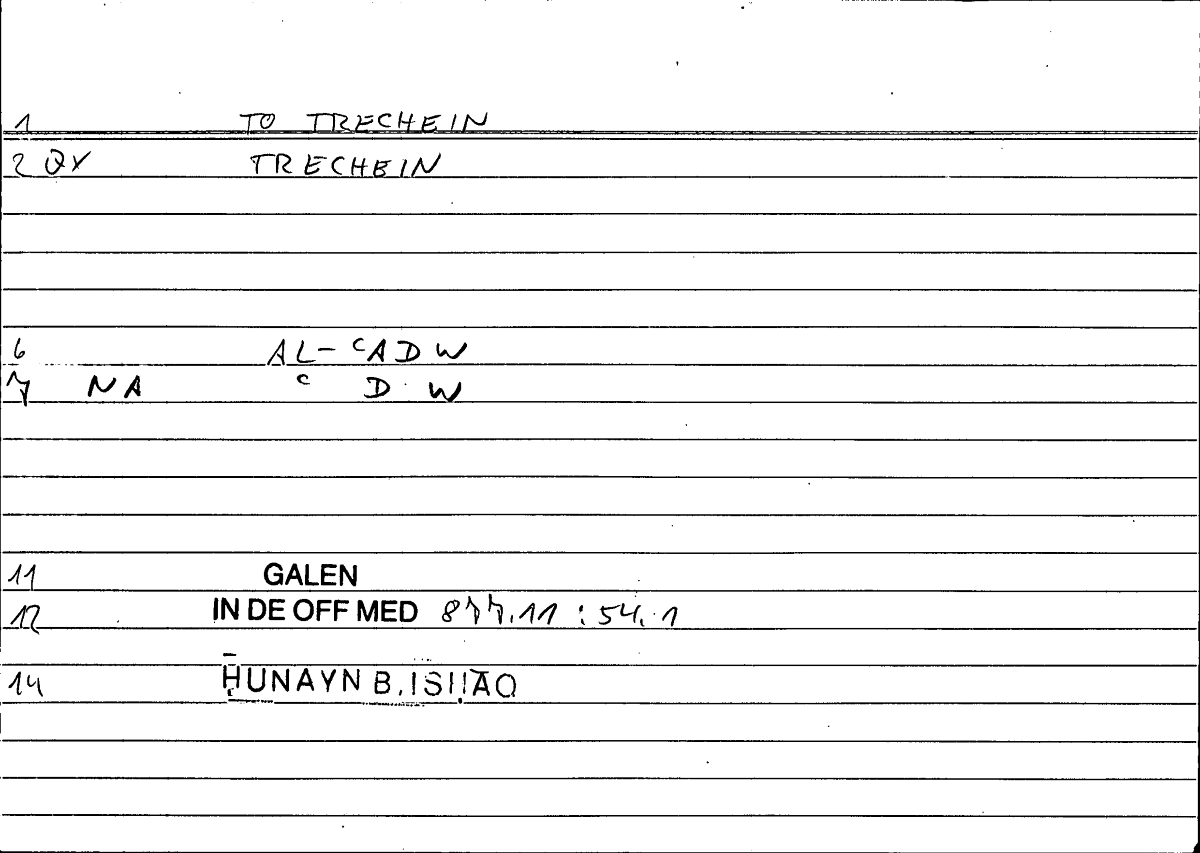 1 TO TRECHEIN
2 QX TRECHEIN
6 AL-ᶜADW
7 NA ᶜ D W
11 GALEN
12 IN DE OFF MED 877.11 : 54.1
14 ḤUNAYN B. ISḤĀQ